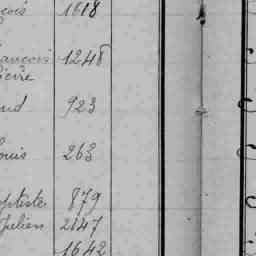 çois 1618
rançois 1248
ierre
and 923
ouis 263
ptiste 879
Julien 2147
1642